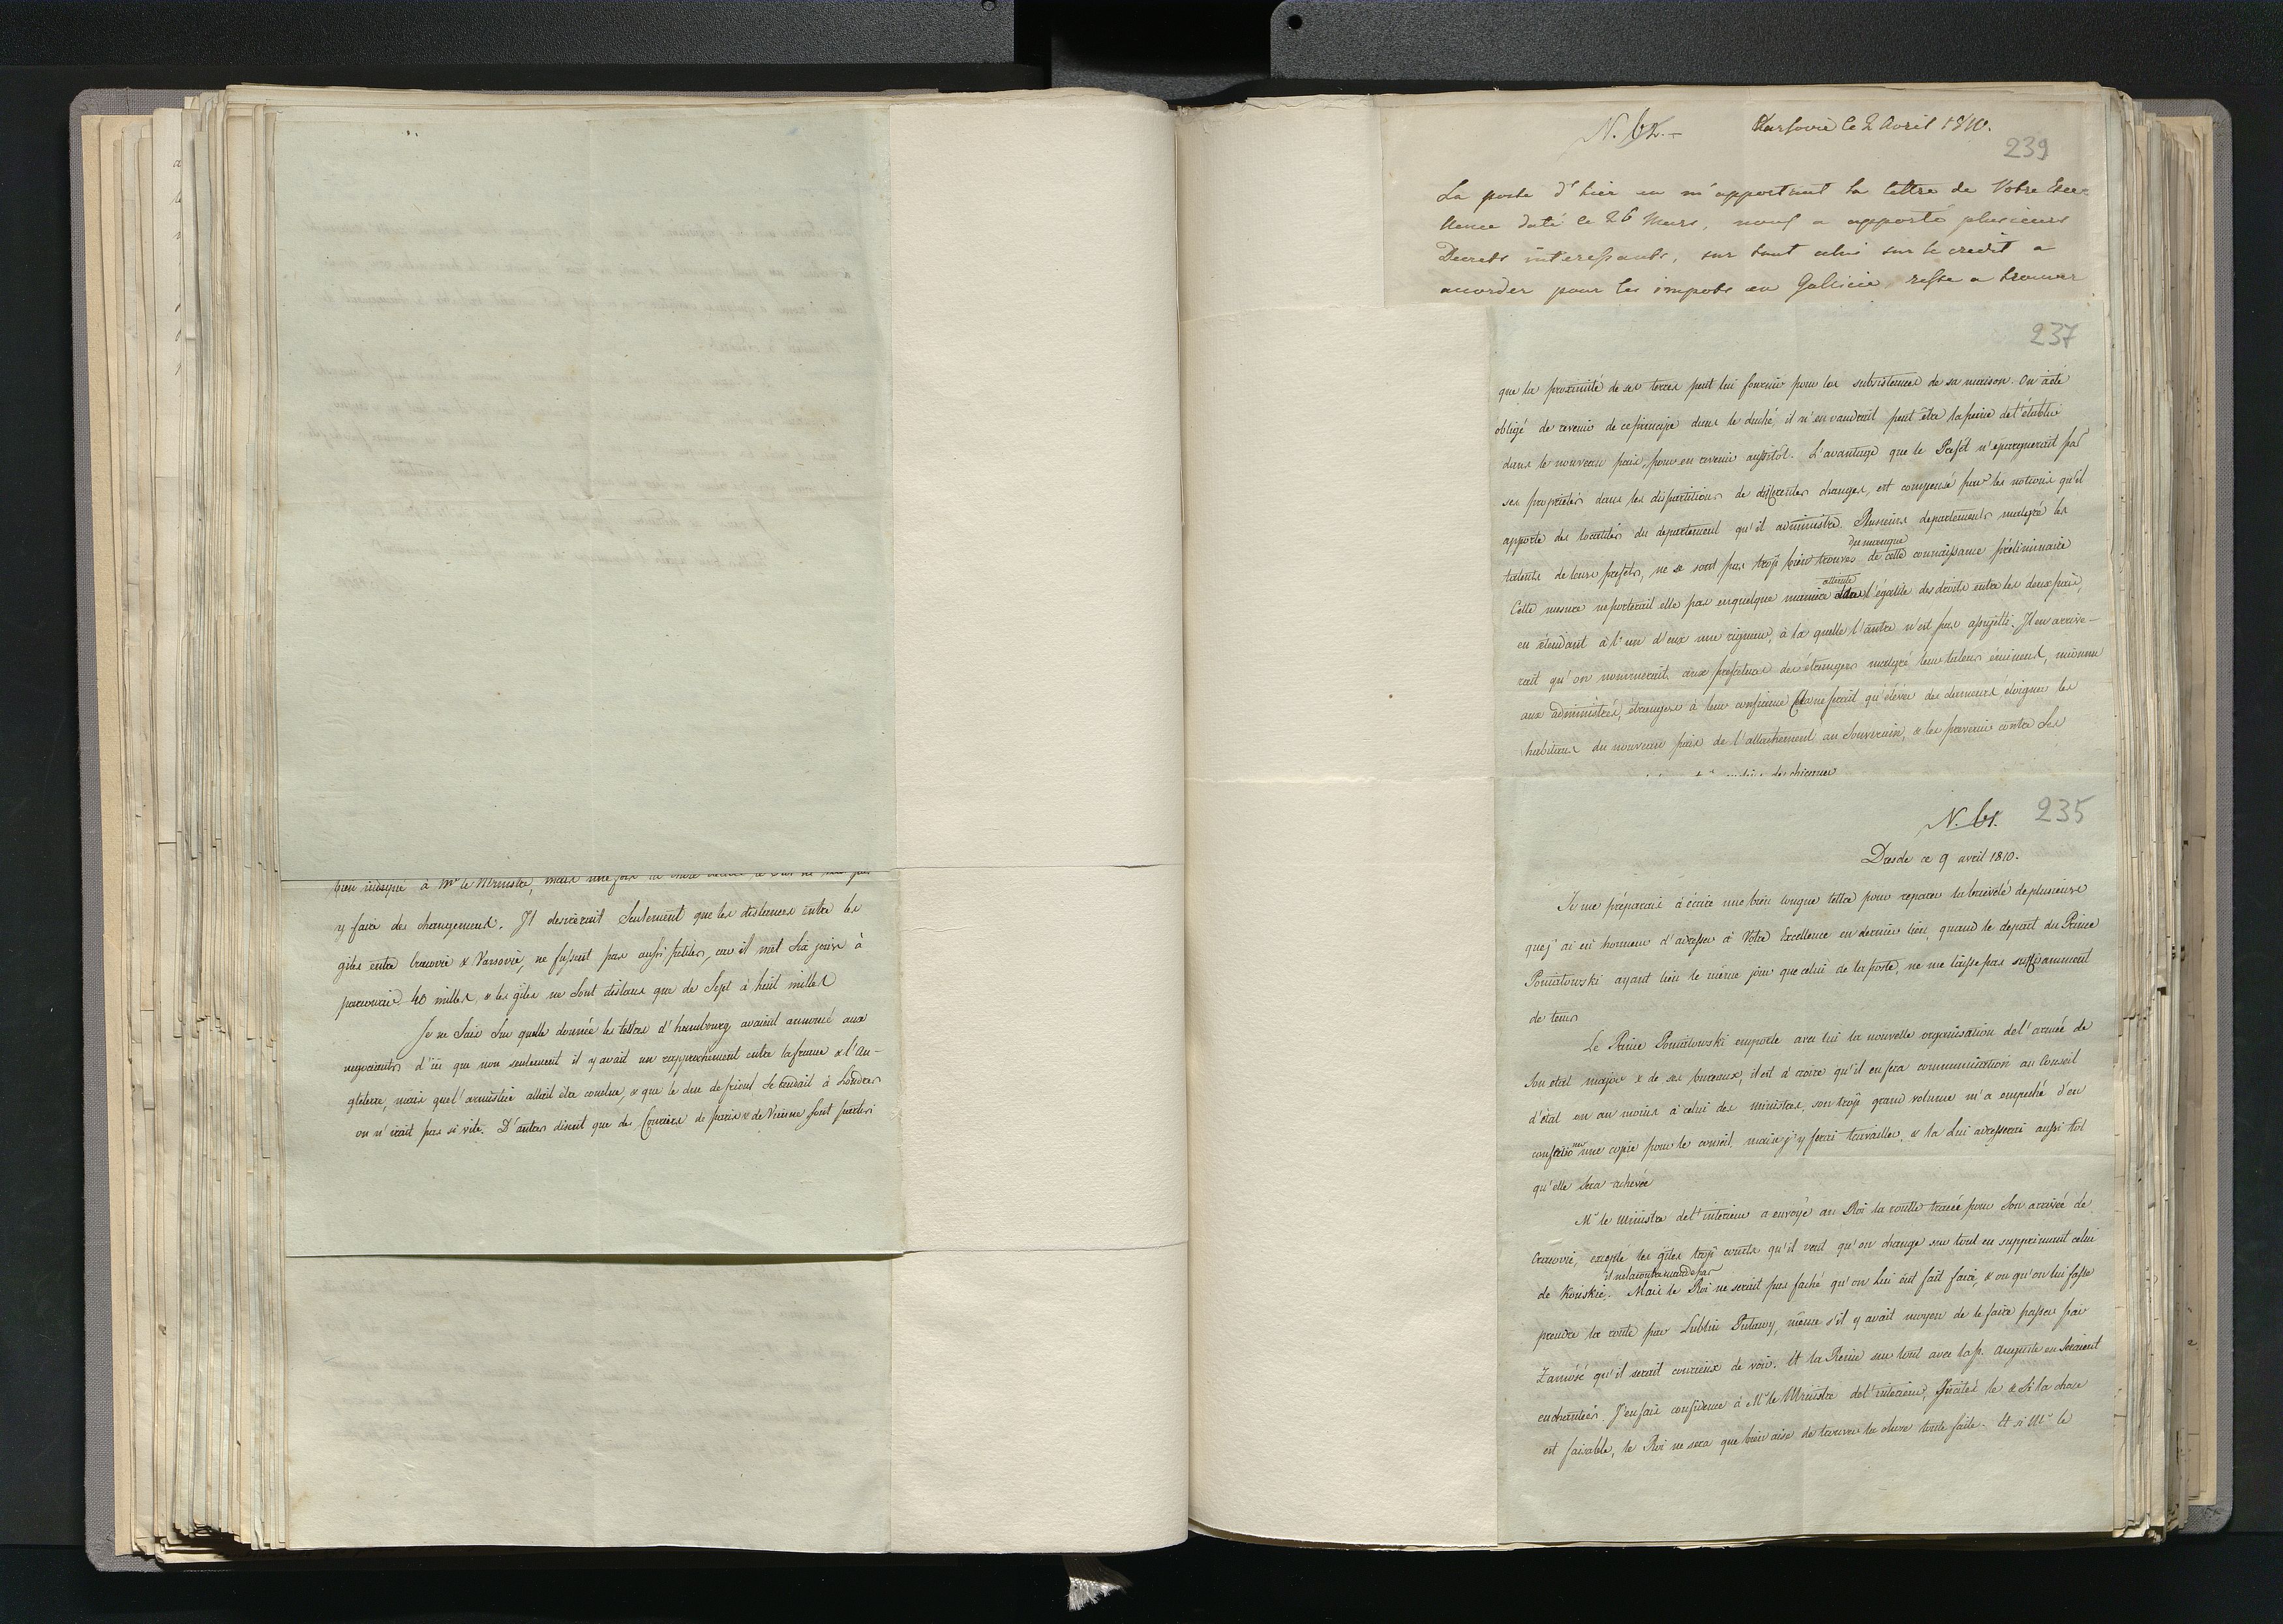 bien indiqué à Mr le Ministre, mais une fois la chose
y faire de changement. Il desirerait Seulement que les distances entre les
gîtes entre Cracovie & Varsovie, ne fussent pas aussi petites, car il met Six jours à
parcourir 40 milles, & les gîtes ne Sont distans que de Sept à huit milles
Je ne Sais Sur quelle donnée les lettres d'hambourg avaient annoncé aux
negociants d'ici que non seulement il y avait un rapprochement entre la france & l'An-
gleterre, mais que l'armistice allait être conclue, & que le duc de frioul Se rendait à Londres
on n'irait pas si vite. D'autres disent que des Couriers de paris & de Vienne Sont partis
N. 62.
Varsovie le 2 Avril 1810.
239
La poste d'hier en m'apportant la lettre de Votre Exce-
llence daté le 26 Mars, nous a apporté plusieurs
Decrets interessants, sur tout celui sur le credit a
accorder pour les impots en Gallicie, reste a trouver
237
que la proximité de ses terres peut lui fournir pour les subsistences de sa maison. On a été
obligé de revenir de ce principe dans le duché, il n'en vaudrait peut être la peine de l'établir
dans le nouveau pais, pour en revenir aussitôt. L'avantage que le Prefet n'epargnerait pas
ses propriétés dans les dispartitions de differentes charges, est compensé par les notions qu'il
apporte des localités du departement qu'il administre. Plusieurs departements malgré les
talents de leurs prefets, ne se sont pas trop bien trouvés du manque de cette connaissance préliminaire
Cette mesure ne porterait elle pas en quelque manière atteinte l'égalité des droits entre les deux pais,
en étendant à l'un d'eux une rigueur, à la quelle l'autre n'est pas assujetti. Il en arrive-
rait qu'on nommerait aux prefectures des étrangers malgré leur talens éminens, inconnu
aux administrés, étrangers à leur confiance Cela ne ferait qu'élever des clameurs éloigner les
habitans du nouveau pais de l'attachement au Souverain, & les prevenir contre Ses
N. 61.
235
Dresde ce 9 avril 1810.
Je me préparais à écrire une bien longue lettre pour reparer la brieveté de plusieurs
que j'ai eu honneur d'adresser à Votre Excellence en dernier lieu, quand le depart du Prince
Poniatowski ayant lieu le même jour que celui de la poste, ne me laisse pas suffisamment
de tems
Le Prince Poniatowski emporte avec lui la nouvelle organisation de l'armée de
Son état major & de ses bureaux, il est à croire qu'il en fera communication au Conseil
d'état ou au moins à celui des ministres, son trop grand volume m'a empeché d'en
une copie pour le conseil, mais j'y ferai travailler, & la Lui adresserai aussi tôt
qu'elle Sera achevée
Mr le Ministre de l'interieur a envoyé au Roi la route tracée pour Son arrivée de
Cracovie, excepté les gîtes trop courts qu'il veut qu'on change sur tout en supprimant celui
de Konskie. il ne la contremande pas Mais le Roi ne serait pas faché qu'on Lui eût fait faire, & ou qu'on lui fasse
prendre la route par Lublin Pulawy, même s'il y avait moyen de le faire passer par
Zamosc qu'il serait courieux de voir. Et la Reine sur tout avec la p. Auguste en Seraient
enchantées. J'en fais confidence à Mr le Ministre de l'interieur, & Si la chose
est faisable, le Roi ne sera que bien aise de trouver la chose toute faite. Et si Mr le